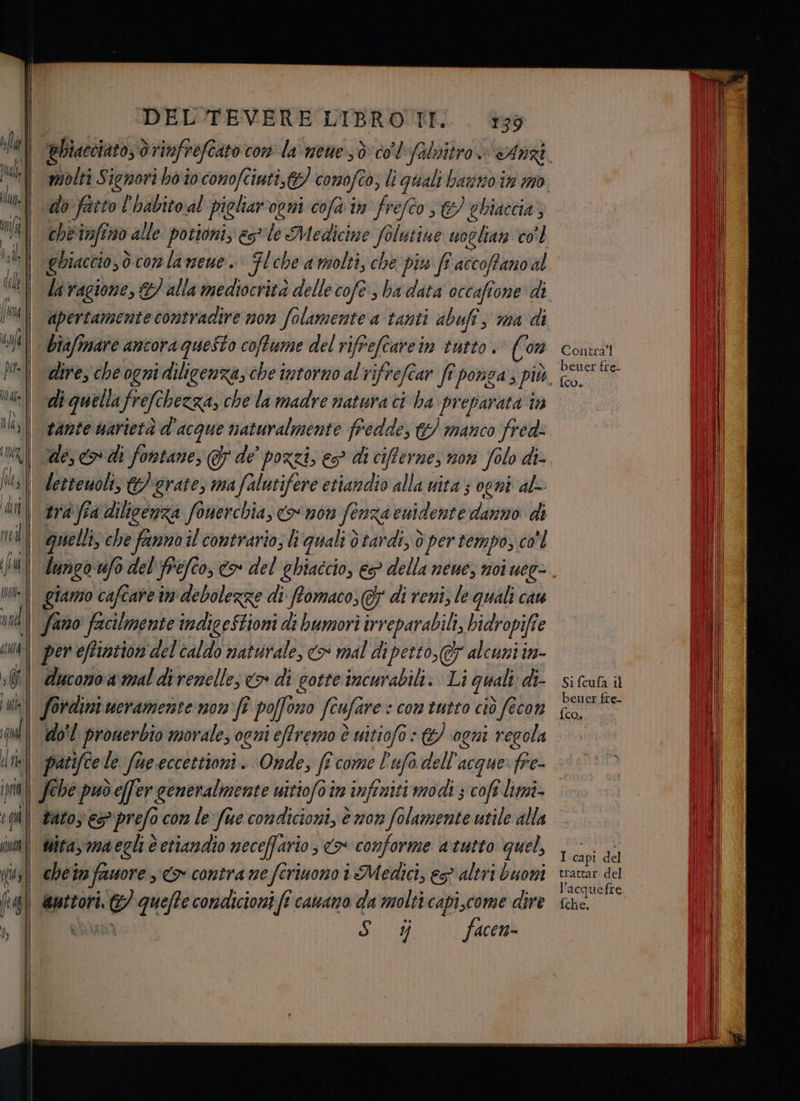 DEL TEVERE LIBRO II. 139
ghiacciato, ò rinfreſcato con la neue, ò co'l ſalnitro. Anzi
molti Signori hò io conoſciuti, & conoſco, li quali hanno in mo
do fatto l'habito al pigliar ogni coſa in freſco, & ghiaccia,
che inſino alle potioni, & le Medicine ſolutiue uoglian co'l
ghiaccio, ò con la neue. Il che a molti, che piu ſi accoſtano al
la ragione, & alla mediocrità delle coſe, ha data occaſione di
apertamente contradire non ſolamente a tanti abuſi, ma di
biaſmare ancora queſto coſtume del rifreſcare in tutto. Con
dire, che ogni diligenza, che intorno al rifreſcar ſi ponga, più
di quella freſchezza, che la madre natura ci ha preparata in
tante uarietà d'acque naturalmente fredde, & manco fred-
de, & di fontane, & de' pozzi, & di ciſterne, non ſolo di-
letteuoli, & grate, ma ſalutifere etiandio alla uita; ogni al-
tra ſia diligenza ſouerchia, & non ſenza euidente danno di
quelli, che fanno il contrario, li quali ò tardi, ò per tempo, co'l
lungo uſo del freſco, & del ghiaccio, & della neue, noi ueg-
giamo caſcare in debolezze di ſtomaco, & di reni, le quali cau
ſano facilmente indigeſtioni di humori irreparabili, hidropiſie
per eſtintion del caldo naturale, & mal di petto, & alcuni in-
ducono a mal di renelle, & di gotte incurabili. Li quali di-
ſordini ueramente non ſi poſſono ſcuſare: con tutto ciò ſecon
do'l prouerbio morale, ogni eſtremo è uitioſo: & ogni regola
patiſce le ſue eccettioni. Onde, ſi come l'uſo dell'acque fre-
ſche può eſſer generalmente uitioſo in infiniti modi; coſi limi-
tato, & preſo con le ſue condicioni, è non ſolamente utile alla
uita, ma egli è etiandio neceſſario, & conforme a tutto quel,
che in fauore, & contra ne ſcriuono i Medici, & altri buoni
auttori. & queſte condicioni ſi cauano da molti capi, come dire
S ij facen-
Contra'l
beuer fre-
ſco.
Si ſcuſa il
beuer fre-
ſco.
I capi del
trattar del
l'acque fre
ſche.